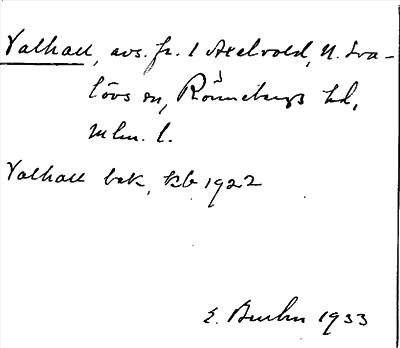 Valhall, avs. fr. 1 Axelvold, N. Sva-
lövs sn, Rönnebergs hd,
Mlm. l.
Valhall bek, kb 1922
E. 1933